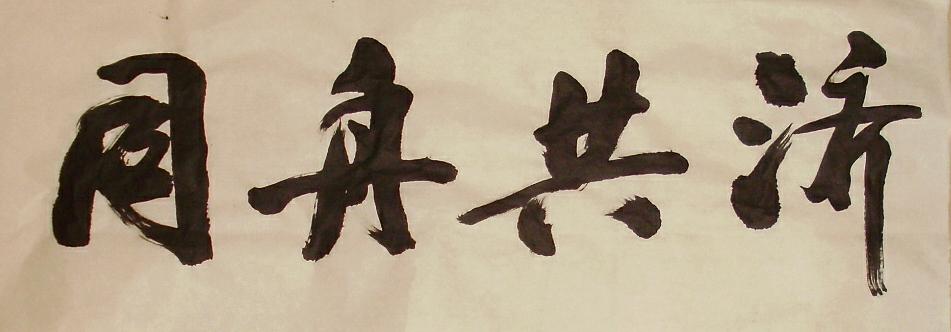 同舟共济